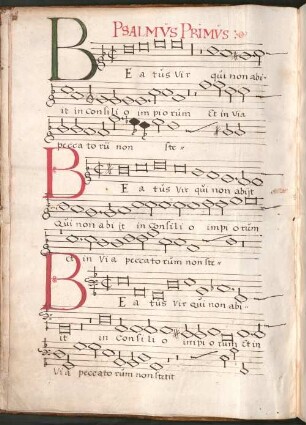 PSALMVS PRIMVS
BEatus vir qui non abi-
it in consili o im pio rum Et in via
pecca to rū non ste-
BEatus vir qui non abijt
Qui non abi jt in consili o impi o rum
et in Vi a pec cato rūm non ste-
BEatus vir qui non abi-
it in consili o impi o rum et in
Vi a peccato rūm non stetit